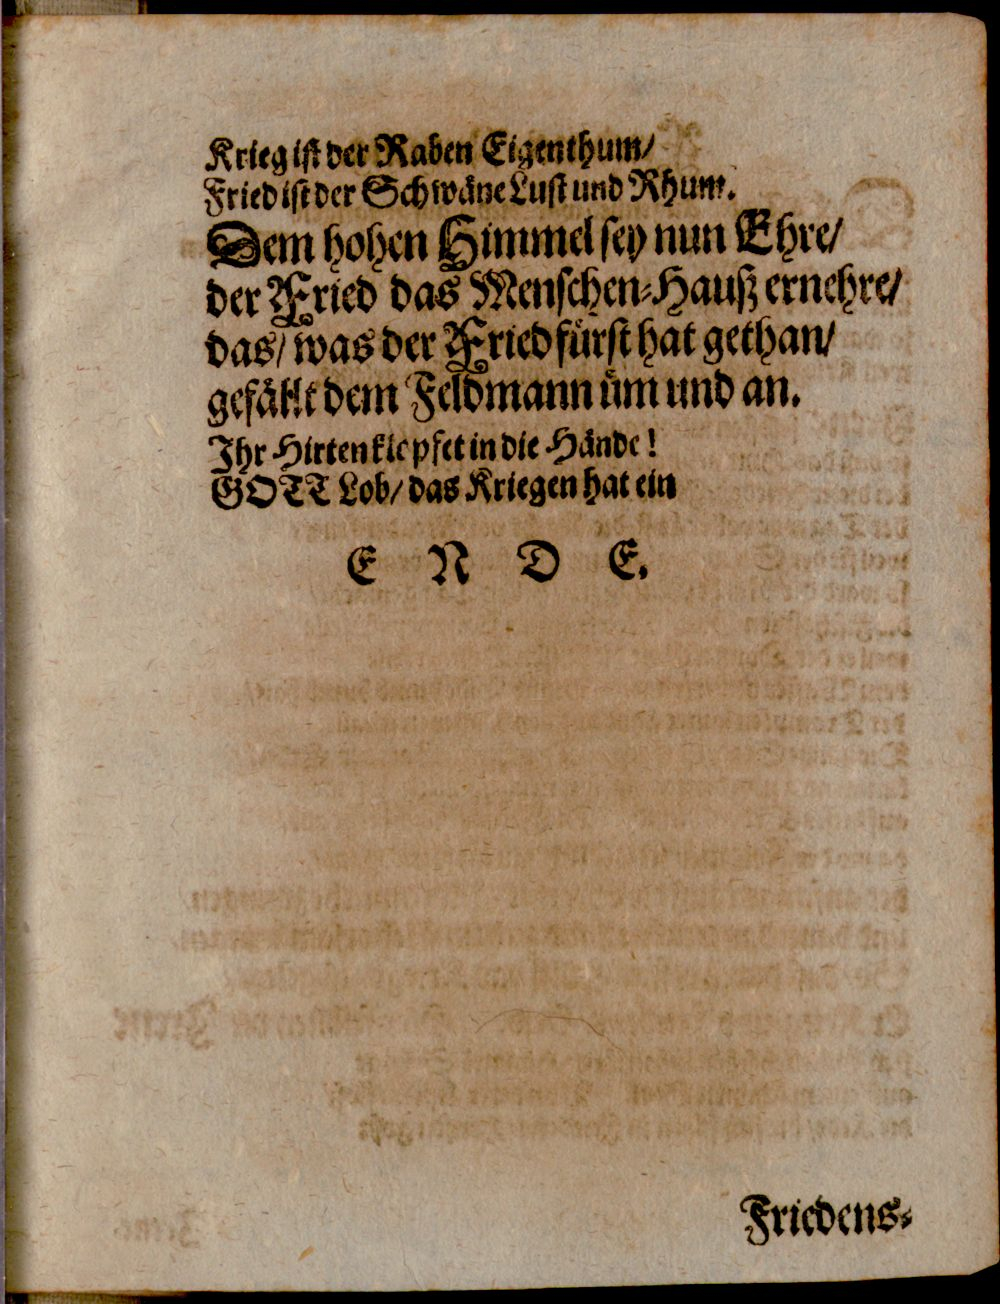 Krieg ist der Raben Eigenthum/
Fried ist der Schwäne Lust und Rhum.
Dem hohen Himmel sey nun Ehre/
der Fried das Menschen-Hauß ernehre/
das/ was der Friedfürst hat gethan/
gefällt dem Feldmann üm und an.
Ihr Hirten klopfet in die Hände!
GOTT Lob/ das Kriegen hat ein
E N D E.
Friedens-